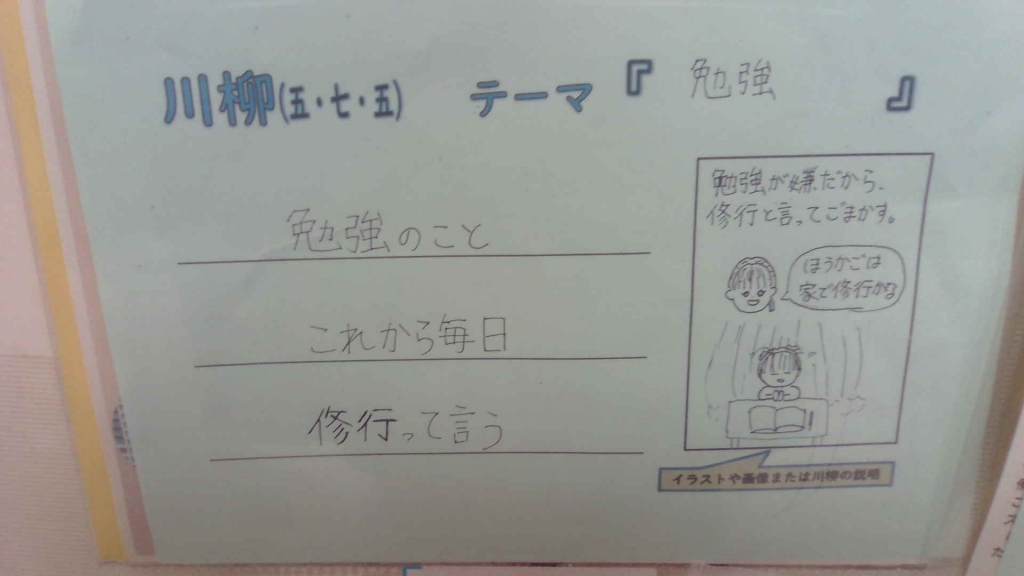 川柳(五・七・五) テーマ『 勉強 』
勉強のこと
これから毎日
修行って言う
勉強が嫌だから、
修行と言ってごまかす。
ほうかごは
家で修行かな
イラストや画像または川柳の説明